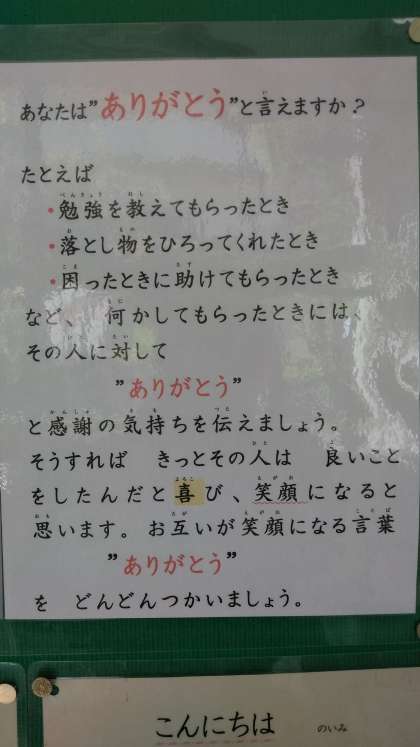 あなたは”ありがとう”と言えますか？
たとえば
・勉強を教えてもらったとき
・落とし物をひろってくれたとき
・困ったときに助けてもらったとき
など、　何かしてもらったときには、
その人に対して
”ありがとう”
と感謝の気持ちを伝えましょう。
そうすれば　きっとその人は　良いこと
をしたんだと喜び、笑顔になると
思います。お互いが笑顔になる言葉
”ありがとう”
を　どんどんつかいましょう。
こんにちは　のいみ